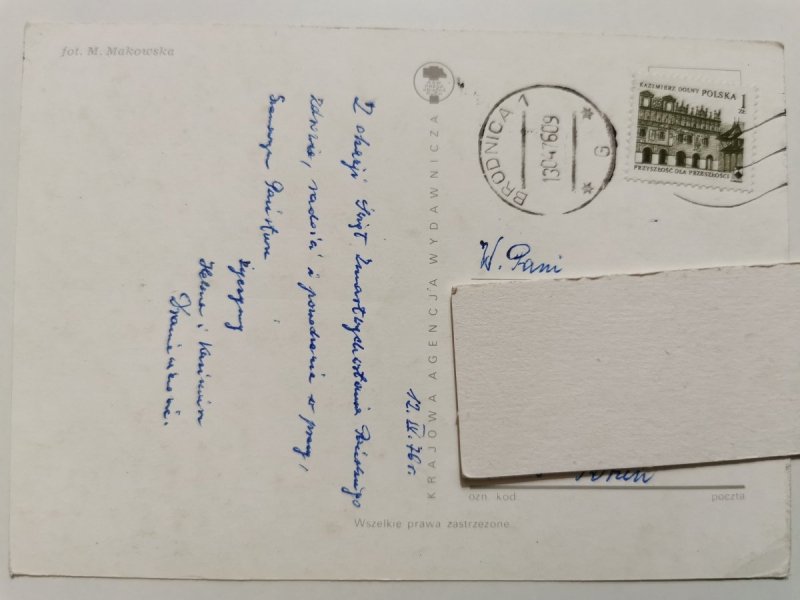 fot. M. Makowska
Z okazji Świąt Zmartwychwstania Pańskiego
zdrowia, radości i powodzenia w pracy,
Szanownym Państwu
życzymy
Helena i Kazimierz
12.IV.76 r.
KRAJOWA AGENCJA WYDAWNICZA
BRODNICA 1
13.04.76.09
G
KAZIMIERZ DOLNY POLSKA
1
ZŁ
PRZYSZŁOŚĆ DLA PRZESZŁOŚCI
W. Pani
ozn. kod
poczta
Wszelkie prawa zastrzeżone